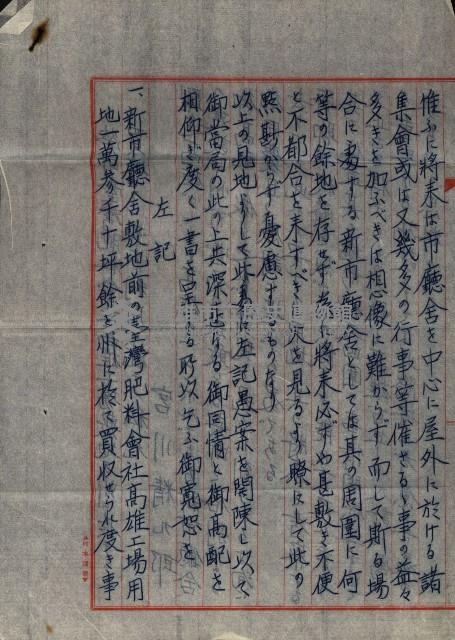 惟ふに將来は市廳舎を中心に屋外に於ける諸
集會或は又幾多の行事等催さるゝ事の益々
多きを加ふべきは想像に難からず而して斯る場
合に處する新市廳舎としては其の周圍に何
等の餘地を存せず為に將来必ずや甚敷き不便
と不都合を来すべき火を見るより瞭にして此の
点勘からず憂慮するものなり
以上の見地よりして此際左記愚案を開陳し以て
御當局の此の上共深甚なる御同情と御高配を
相仰ぎ度く一書を呈する所以乞ふ御寬恕を
左記
一、新市廳舎敷地前の臺灣肥料會社高雄工場用
地一萬参千十坪餘を州に於て買収せられ度き事